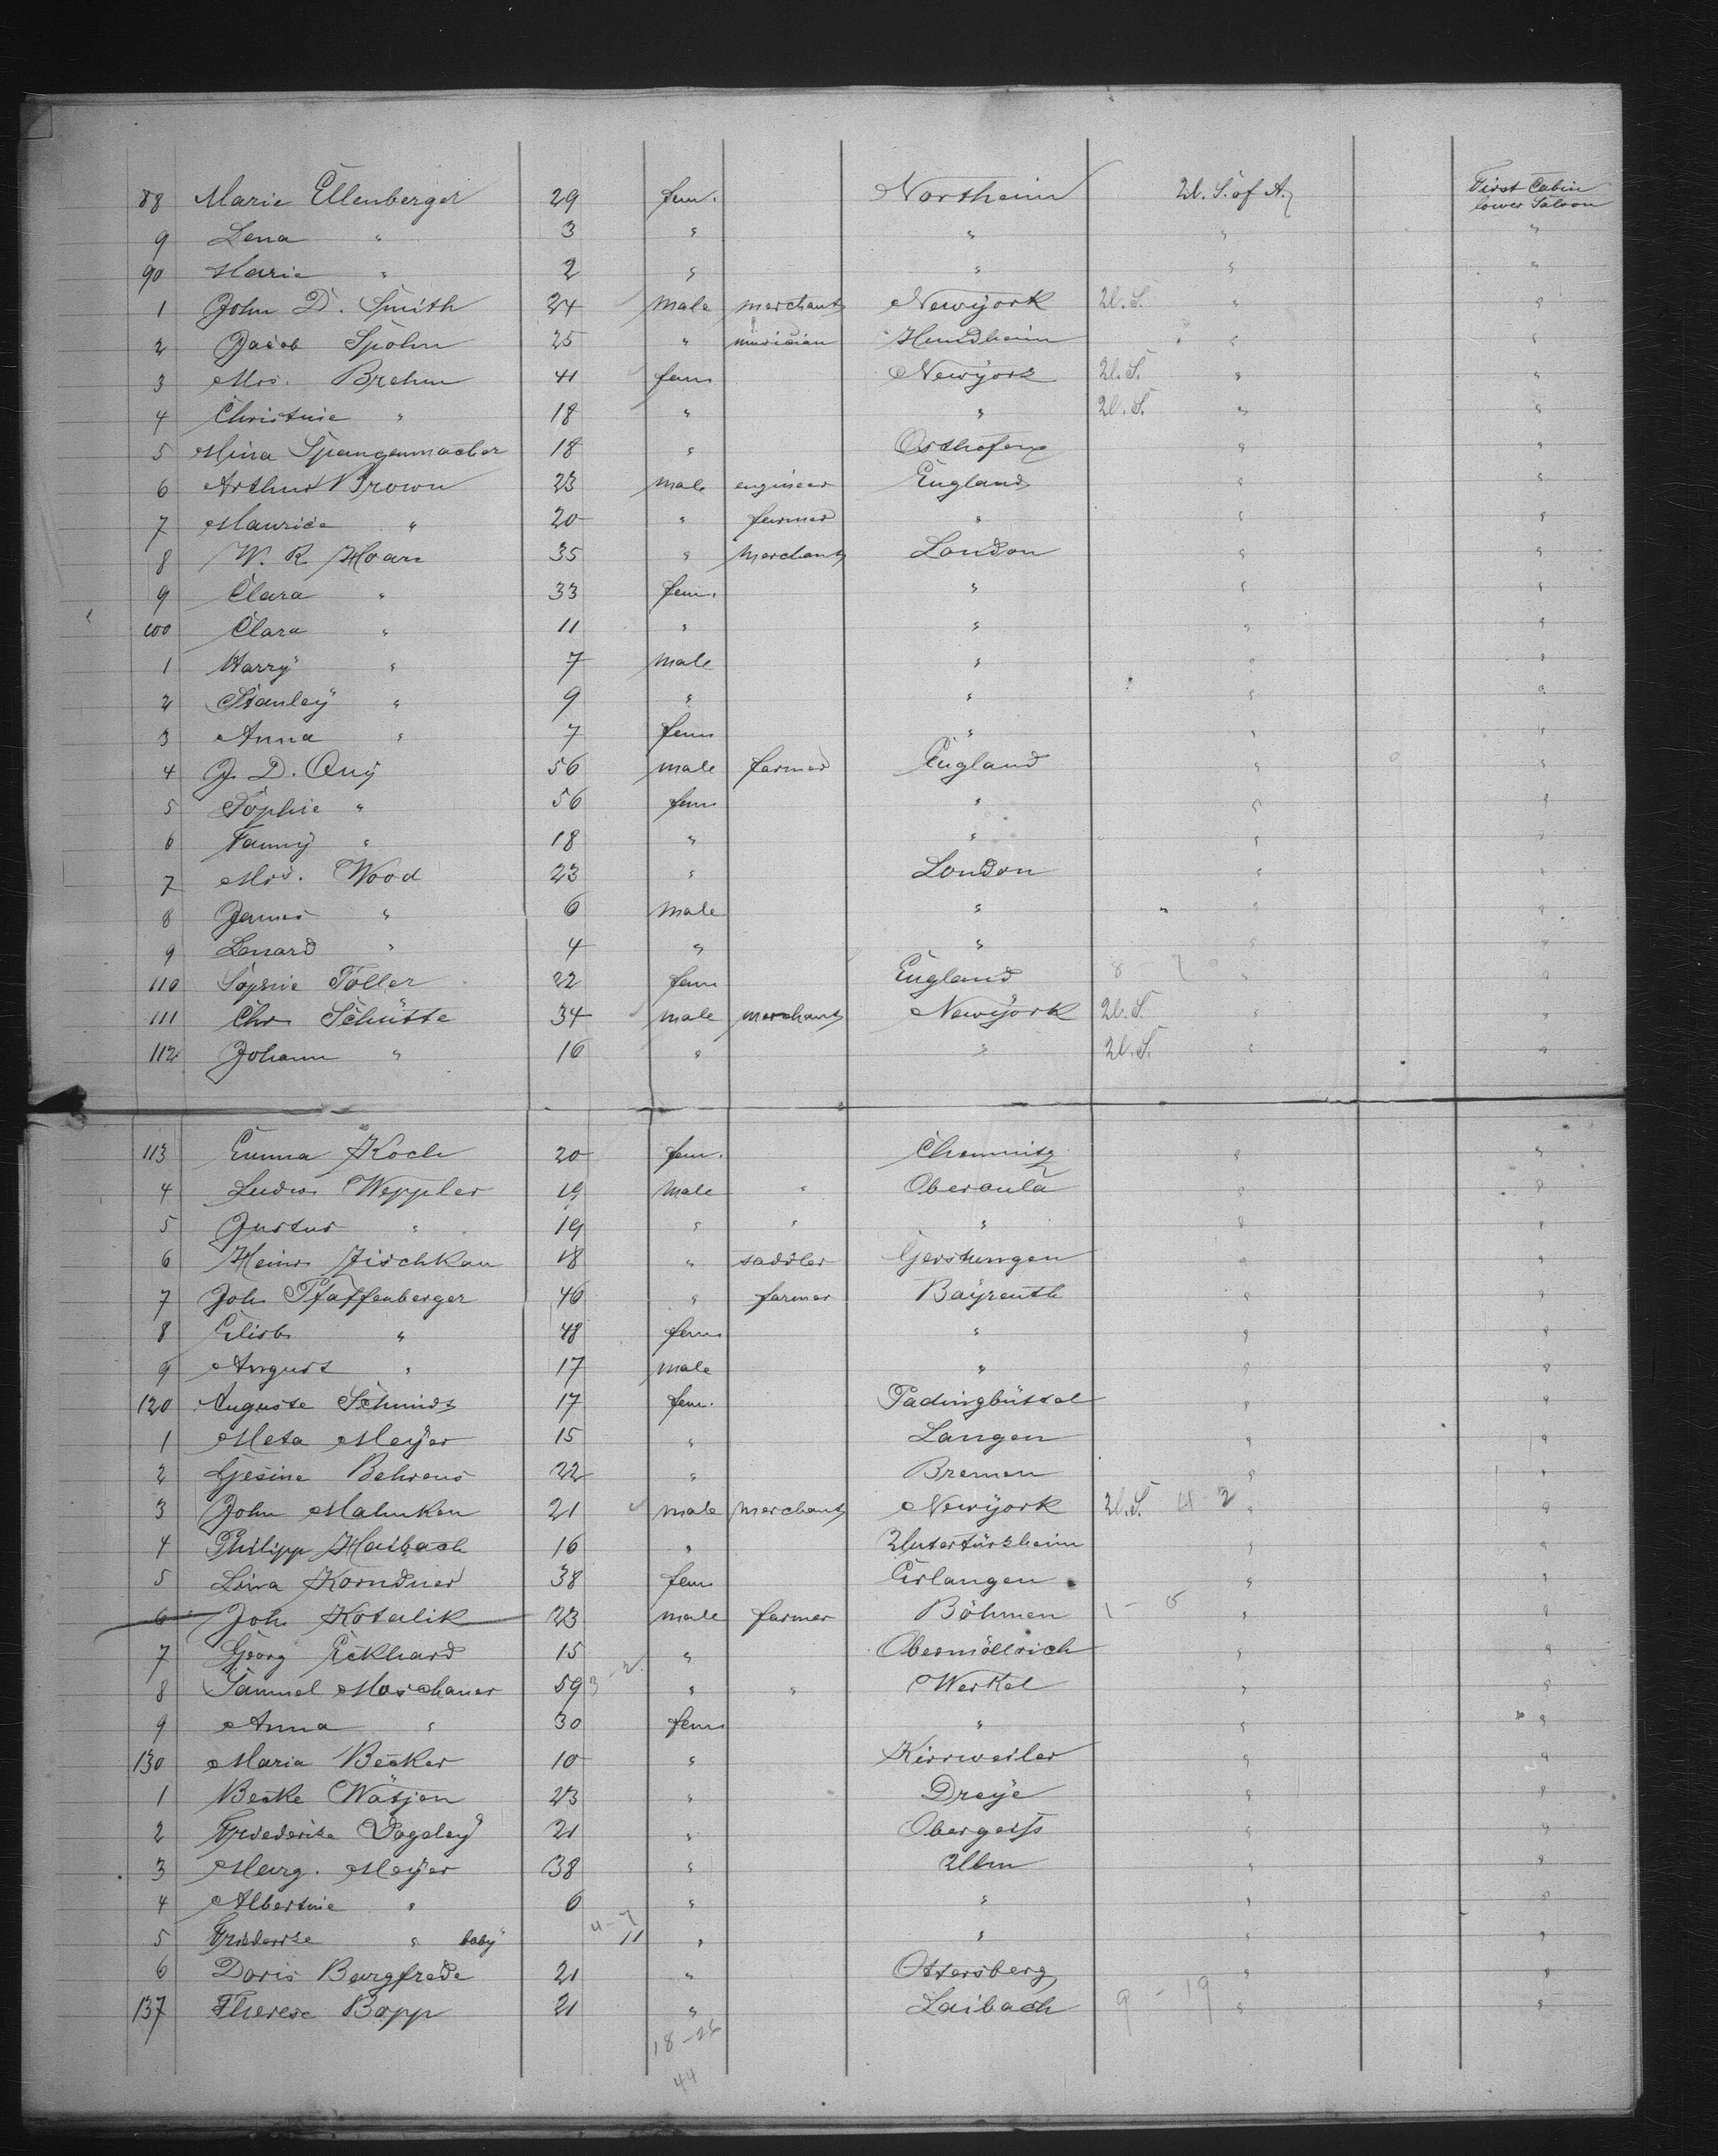 88 Marie Ellenberger 29 fem. Northeim U. S. of A. First Cabin lower Saloon
9 Lena " 3 " " " "
90 Marie " 2 " " " "
1 John D. Smith 24 male merchant Newyork U.S. " "
2 Jacob Spohn 25 " musician Hundheim " "
3 Mrs. Brehm 41 fem Newyork U.S. " "
4 Christine " 18 " " U.S. " "
5 Mina Spangenmacher 18 " Osthofen " "
6 Arthur Brown 23 male engineer England " "
7 Maurice " 20 " farmer " " "
8 W. R. Hoare 35 " merchant London " "
9 Clara " 33 fem. " " "
100 Clara " 11 " " " "
1 Harry " 7 male " " "
2 Stanley " 9 " " " "
3 Anna " 7 fem " " "
4 J. D. Quy 56 male farmer England " "
5 Sophie " 56 fem " " "
6 Fanny " 18 " " " "
7 Mrs. Wood 23 " London " "
8 James " 6 male " " "
9 Lenard " 4 " " " "
110 Sophie Toller 22 fem England " "
111 Chr. Schütte 34 male merchant Newyork U.S. " "
112 Johann " 16 " " U.S. " "
113 Emma Koch 20 fem. Chemnitz " "
4 Ludw. Weppler 19 male " Oberaula " "
5 Justus " 19 " " " " "
6 Heinr. Jischkau 18 " saddler Gerstungen " "
7 Joh. Pfaffenberger 46 " farmer Bayreuth " "
8 Elisb. " 48 fem " " "
9 August " 17 male " " "
120 Auguste Schmidt 17 fem. Padingbüttel " "
1 Meta Meyer 15 " Langen " "
2 Gesine Behrens 22 " Bremen " "
3 John Mahnken 21 male merchant Newyork U.S. 4-2 " "
4 Philipp Haibach 16 " Untertürkheim " "
5 Lina Korndner 38 fem Erlangen " "
6 Joh. Kotalik 23 male farmer Böhmen " "
7 Georg Eckhard 15 " Obermöllrich " "
8 Samuel Moschauer 59 3-2 " " Werkel " "
9 Anna " 30 fem " " "
130 Maria Becker 10 " Kirrweiler " "
1 Becke Wätjen 23 " Dreye " "
2 Friederike Vogeley 21 " Obergeis " "
3 Marg. Meyer 38 " Ulm " "
4 Albertine " 6 " " " "
5 Friederike " baby 11 " " " "
6 Doris Burgfrede 21 " Ottersberg " "
137 Therese Bopp 21 " Laibach 9 - 19 " "
18-26
44